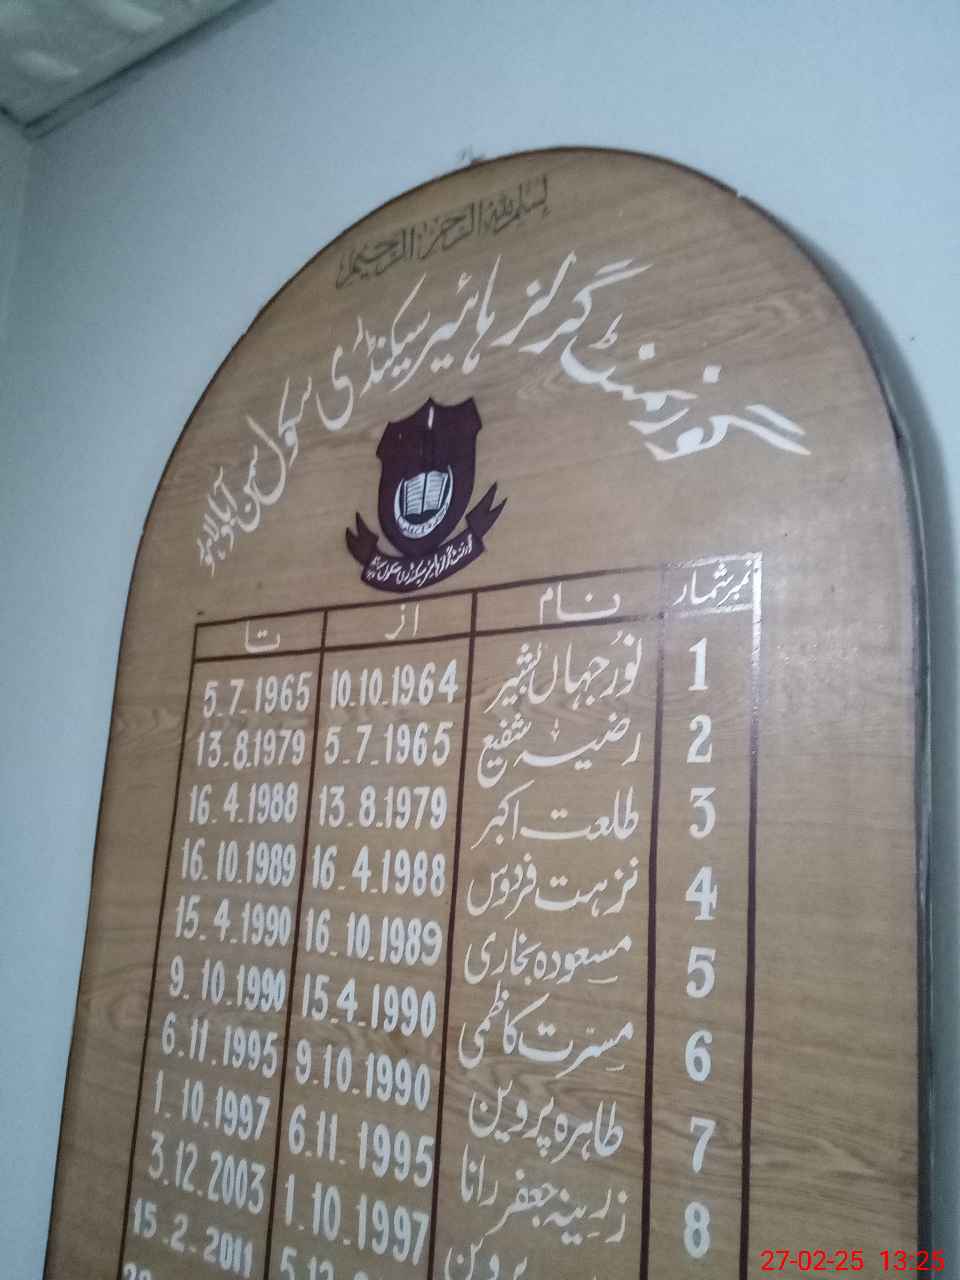 بسم الله الرحمن الرحيم
گورنمنٹ گرلز ہائیر سیکنڈری سکول سمن آباد لاہور
نمبر شمار نام از تا
1 نور جہاں بشیر 10.10.1964 5.7.1965
2 رضیہ شفیع 5.7.1965 13.8.1979
3 طلعت اکبر 13.8.1979 16.4.1988
4 نزہت فردوس 16.4.1988 16.10.1989
5 مسعودہ بخاری 16.10.1989 15.4.1990
6 مسرت کاظمی 15.4.1990 9.10.1990
7 طاہرہ پروین 9.10.1990 6.11.1995
8 زرینہ جعفر رانا 6.11.1995 1.10.1997
پروین 1.10.1997 3.12.2003
15.2.2011
27-02-25 13:25